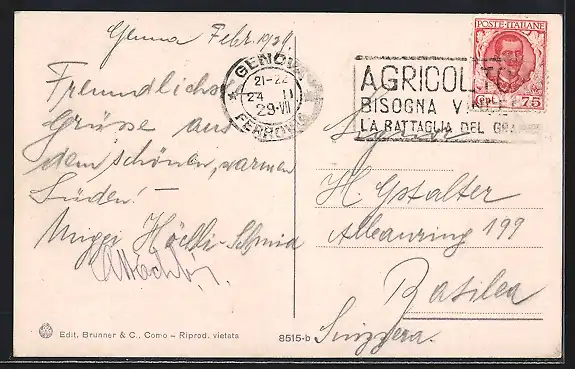 Genua Febr. 1929.
Freundliche
Grüsse aus
dem schönen, warmen
Süden! –
Miggi Höchli-Schmid
A. Höchli
GENOVA
21-22
24 II
29·VII
FERROVIA
AGRICOLTORI
BISOGNA VINCERE
LA BATTAGLIA DEL GRANO
POSTE·ITALIANE
Cent. 75
Signor
H. Gstalter
Alleauring 199
Basilea
Svizzera.
Edit. Brunner & C., Como – Riprod. vietata
8515-b